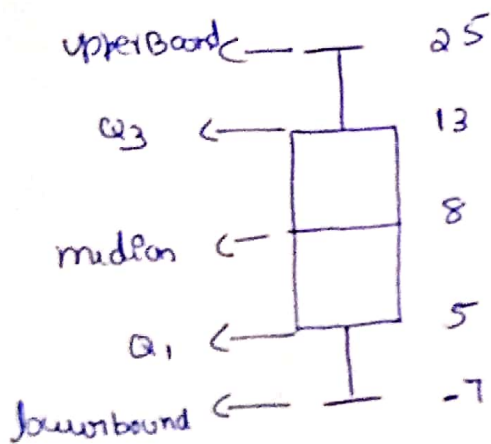 upperBoard 25
Q3 13
median 8
Q1 5
lowerbound -7